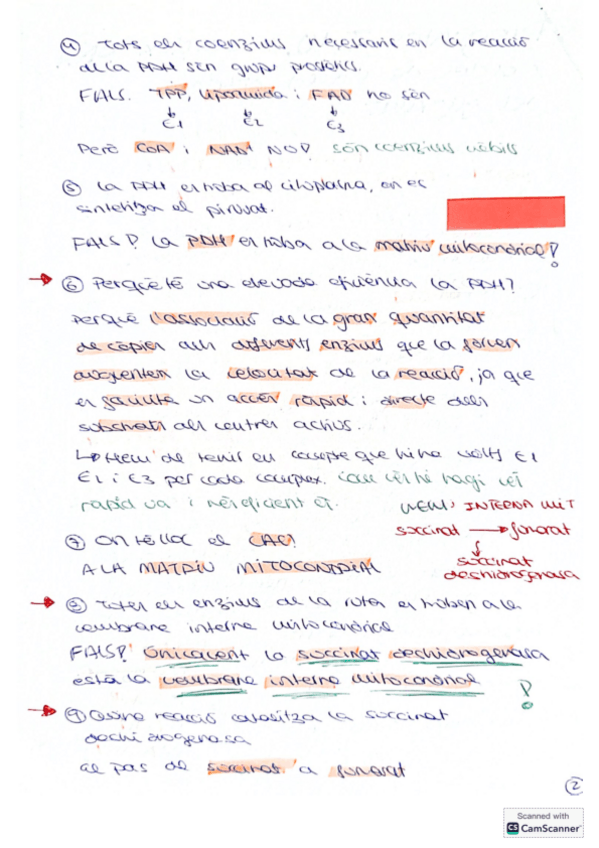 ④ Tots els coenzims necessaris en la reacció
de la PDH són grups prostètics.
FALS. TPP, lipoamida i FAD ho són
E1 E2 E3
Però CoA i NAD+ NO! són coenzims mòbils
⑤ La PDH es troba al citoplasma, on es
sintetitza el piruvat.
FALS! La PDH es troba a la matriu mitocondrial!
→ ⑥ Perquè té una elevada eficiència la PDH?
Perquè l'associació de la gran quantitat
de còpies dels diferents enzims que la formen
augmenten la velocitat de la reacció, ja que
es facilita un accés ràpid i directe dels
substrats als centres actius.
↳ Hem de tenir en compte que hi ha molts E1
E2 i E3 per cada complex. com més hi hagi més
ràpid va i més eficient és.
⑦ On té lloc el CAC?
A LA MATRIU MITOCONDRIAL
MEM. INTERNA MIT
succinat → fumarat
succinat
deshidrogenasa
→ ⑧ Totes els enzims de la ruta es troben a la
membrana interna mitocondrial
FALS! Únicament la succinat deshidrogenasa
està la membrana interna mitocondrial !
→ ⑨ Quina reacció catalitza la succinat
deshidrogenasa
el pas de succinat a fumarat
②
Scanned with
CS CamScanner